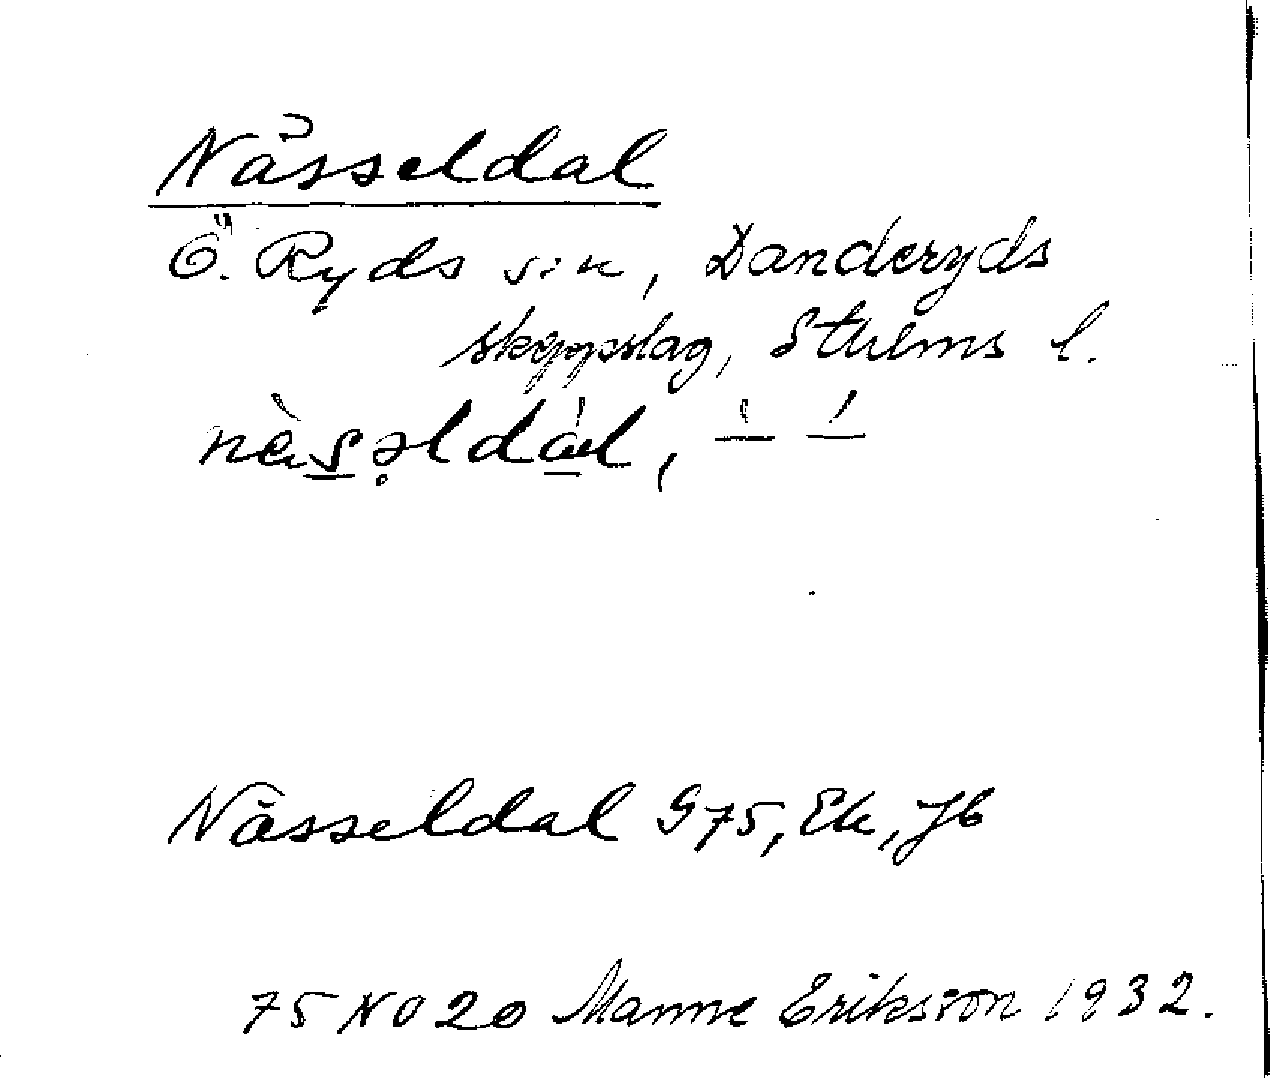 Nässeldal
Ö. Ryds sn, Danderyds
skeppslag, Sthlms l.
Nässeldal G75, Ek, Jb
75 NO 20 Manne Eriksson 1932.